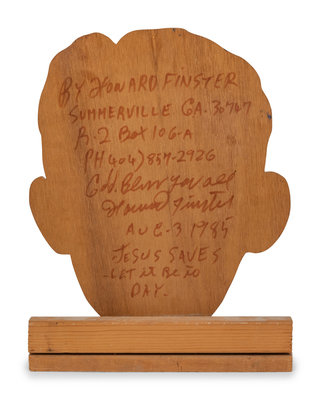 BY HOWARD FINSTER
SUMMERVILLE GA. 30747
R. 2 BOX 106-A
PH (404) 857-2926
God Bless you all
Howard Finster
AUG-3 1985
JESUS SAVES
-LET it BE to
DAY.